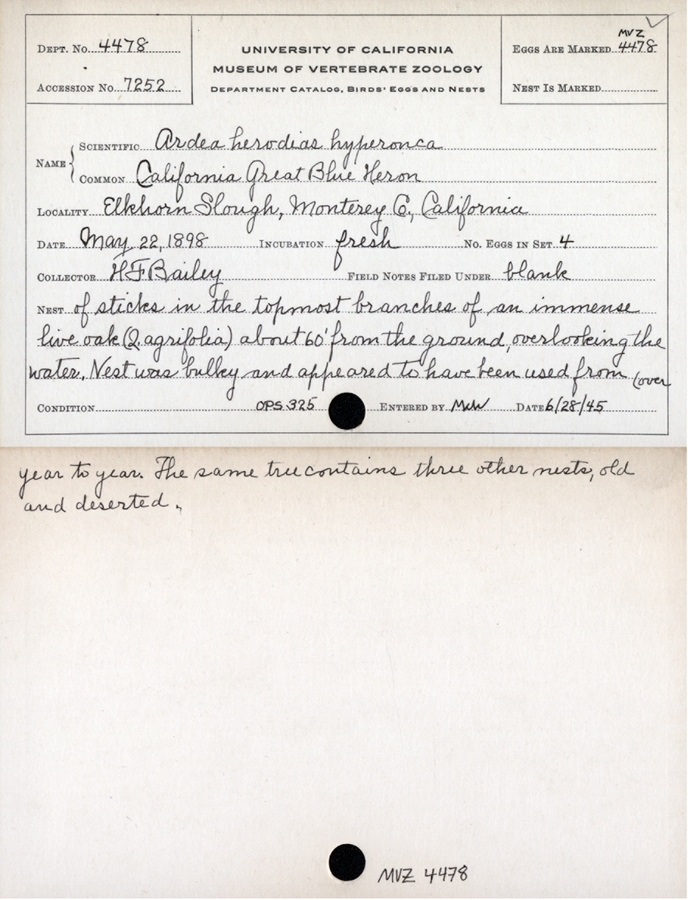 DEPT. No. 4478
ACCESSION No. 7252
UNIVERSITY OF CALIFORNIA
MUSEUM OF VERTEBRATE ZOOLOGY
DEPARTMENT CATALOG, BIRDS' EGGS AND NESTS
MVZ
EGGS ARE MARKED 4478
NEST IS MARKED
NAME { SCIENTIFIC Ardea herodias hyperonca
COMMON California Great Blue Heron
LOCALITY Elkhorn Slough, Monterey C., California
DATE May 22, 1898 INCUBATION fresh No. EGGS IN SET 4
COLLECTOR H F Bailey FIELD NOTES FILED UNDER blank
NEST of sticks in the topmost branches of an immense
live oak (Q. agrifolia) about 60' from the ground, overlooking the
water. Nest was bulky and appeared to have been used from (over
CONDITION OPS 325 ENTERED BY MW DATE 6/28/45
year to year. The same tree contains three other nests, old
and deserted.
MVZ 4478